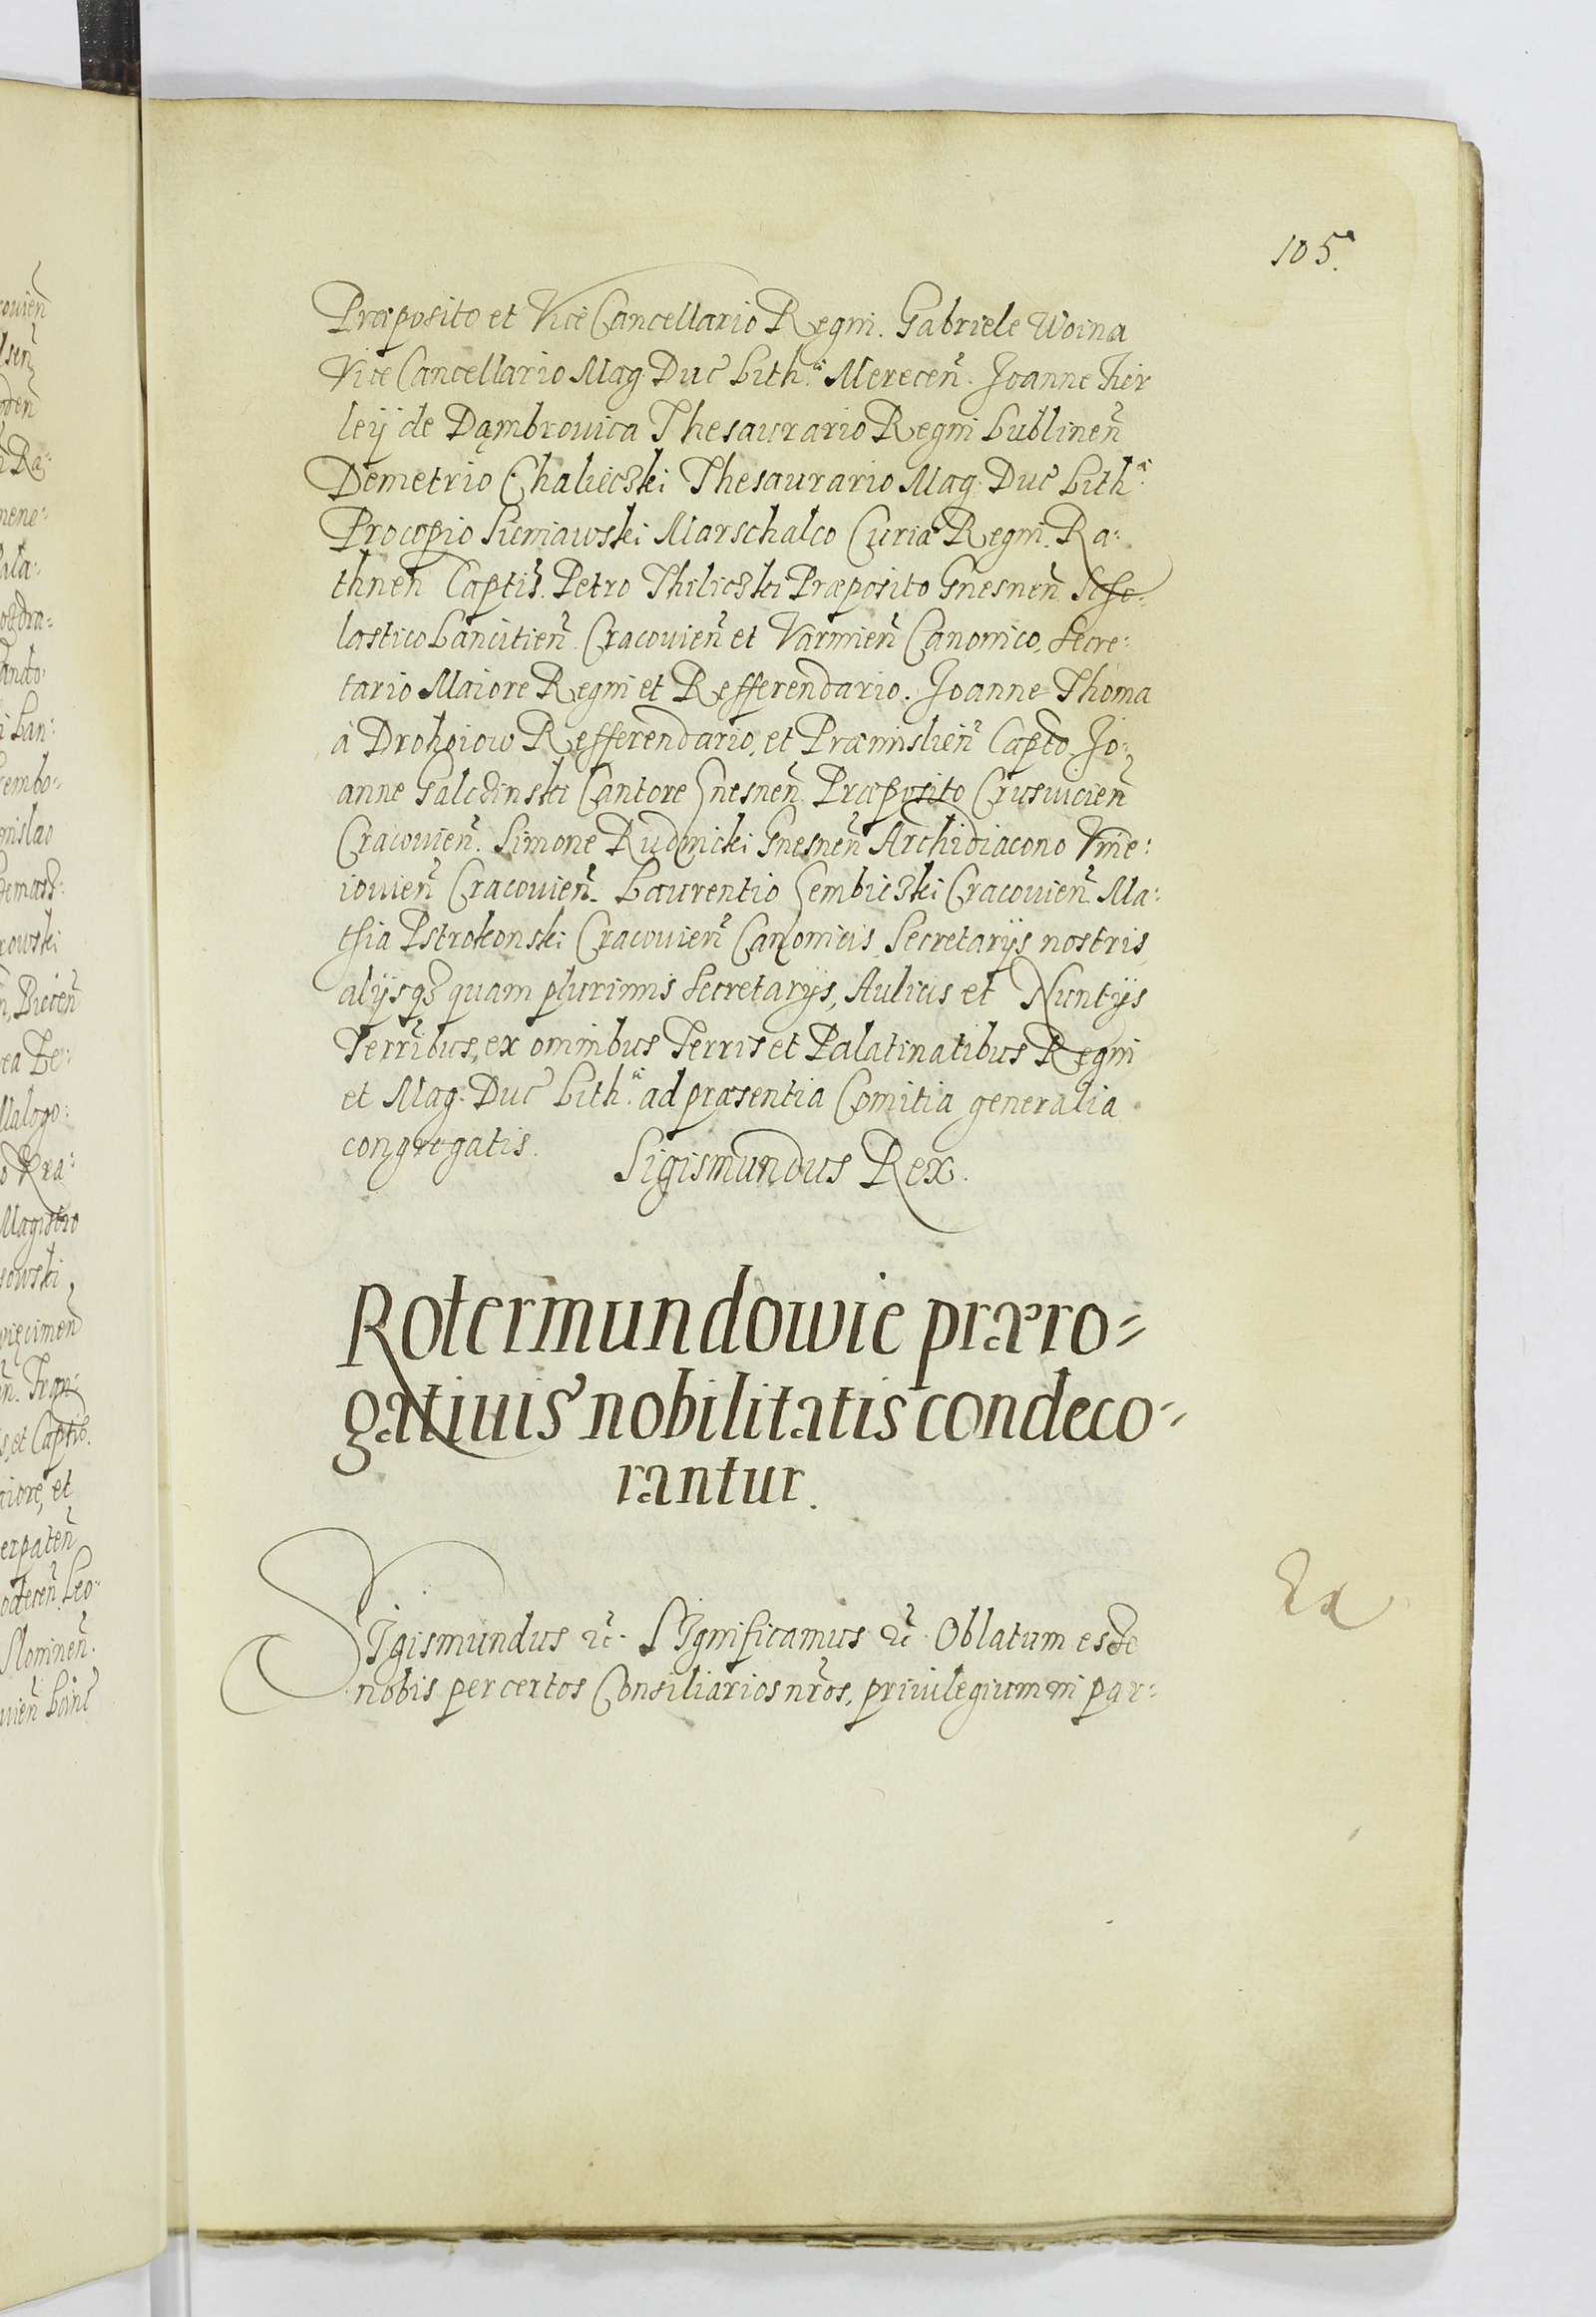 105.
Præposito et Vice Cancellario Regni. Gabriele Woina
Vice Cancellario Mag. Duc̃ Lithᵃ. Merecen̄. Joanne Fir
leÿ de Dąmbrouica Thesaurario Regni Lublinen̄
Demetrio Chalieczki Thesaurario Mag. Duc̃ Lithᵃ.
Procopio Sieniawski Marschalco Curiæ Regni. Ra:
thnen̄ Captis̄. Petro Thiliczki Præposito Gnesnen̄ Scho:
lastico Lancitien̄. Cracouien̄ et Varmien̄ Canonico, Secre:
tario Maiore Regni et Refferendario. Joanne Thoma
à Drohoiow Refferendario, et Præmislien̄ Capt̄o. Jo:
anne Galczinski Cantore Gnesnen̄ Præposito Crusuicien̄
Cracouien̄. Simone Rudnicki Gnesnen̄ Archidiacono Vnie:
iouien̄ Cracouien̄. Laurentio Gembiczki Cracouien̄. Ma:
thia Pstrokonski Cracouien̄ Canonicis, Secretarijs nostris,
alijsqȝ quam plurimis Secretarijs, Aulicis et Nuntijs
Terr̄ibus, ex omnibus Terris et Palatinatibus Regni
et Mag. Duc̃ Lithᵃ. ad præsentia Comitia generalia
congregatis.
Sigismundus Rex.
Rotermundowie præro=
gatiuis nobilitatis condeco=
rantur.
SIgismundus ꝛc̃. SIgnificamus ꝛc̃. Oblatum esse
nobis per certos Consiliarios nr̄os, priuilegium in par=